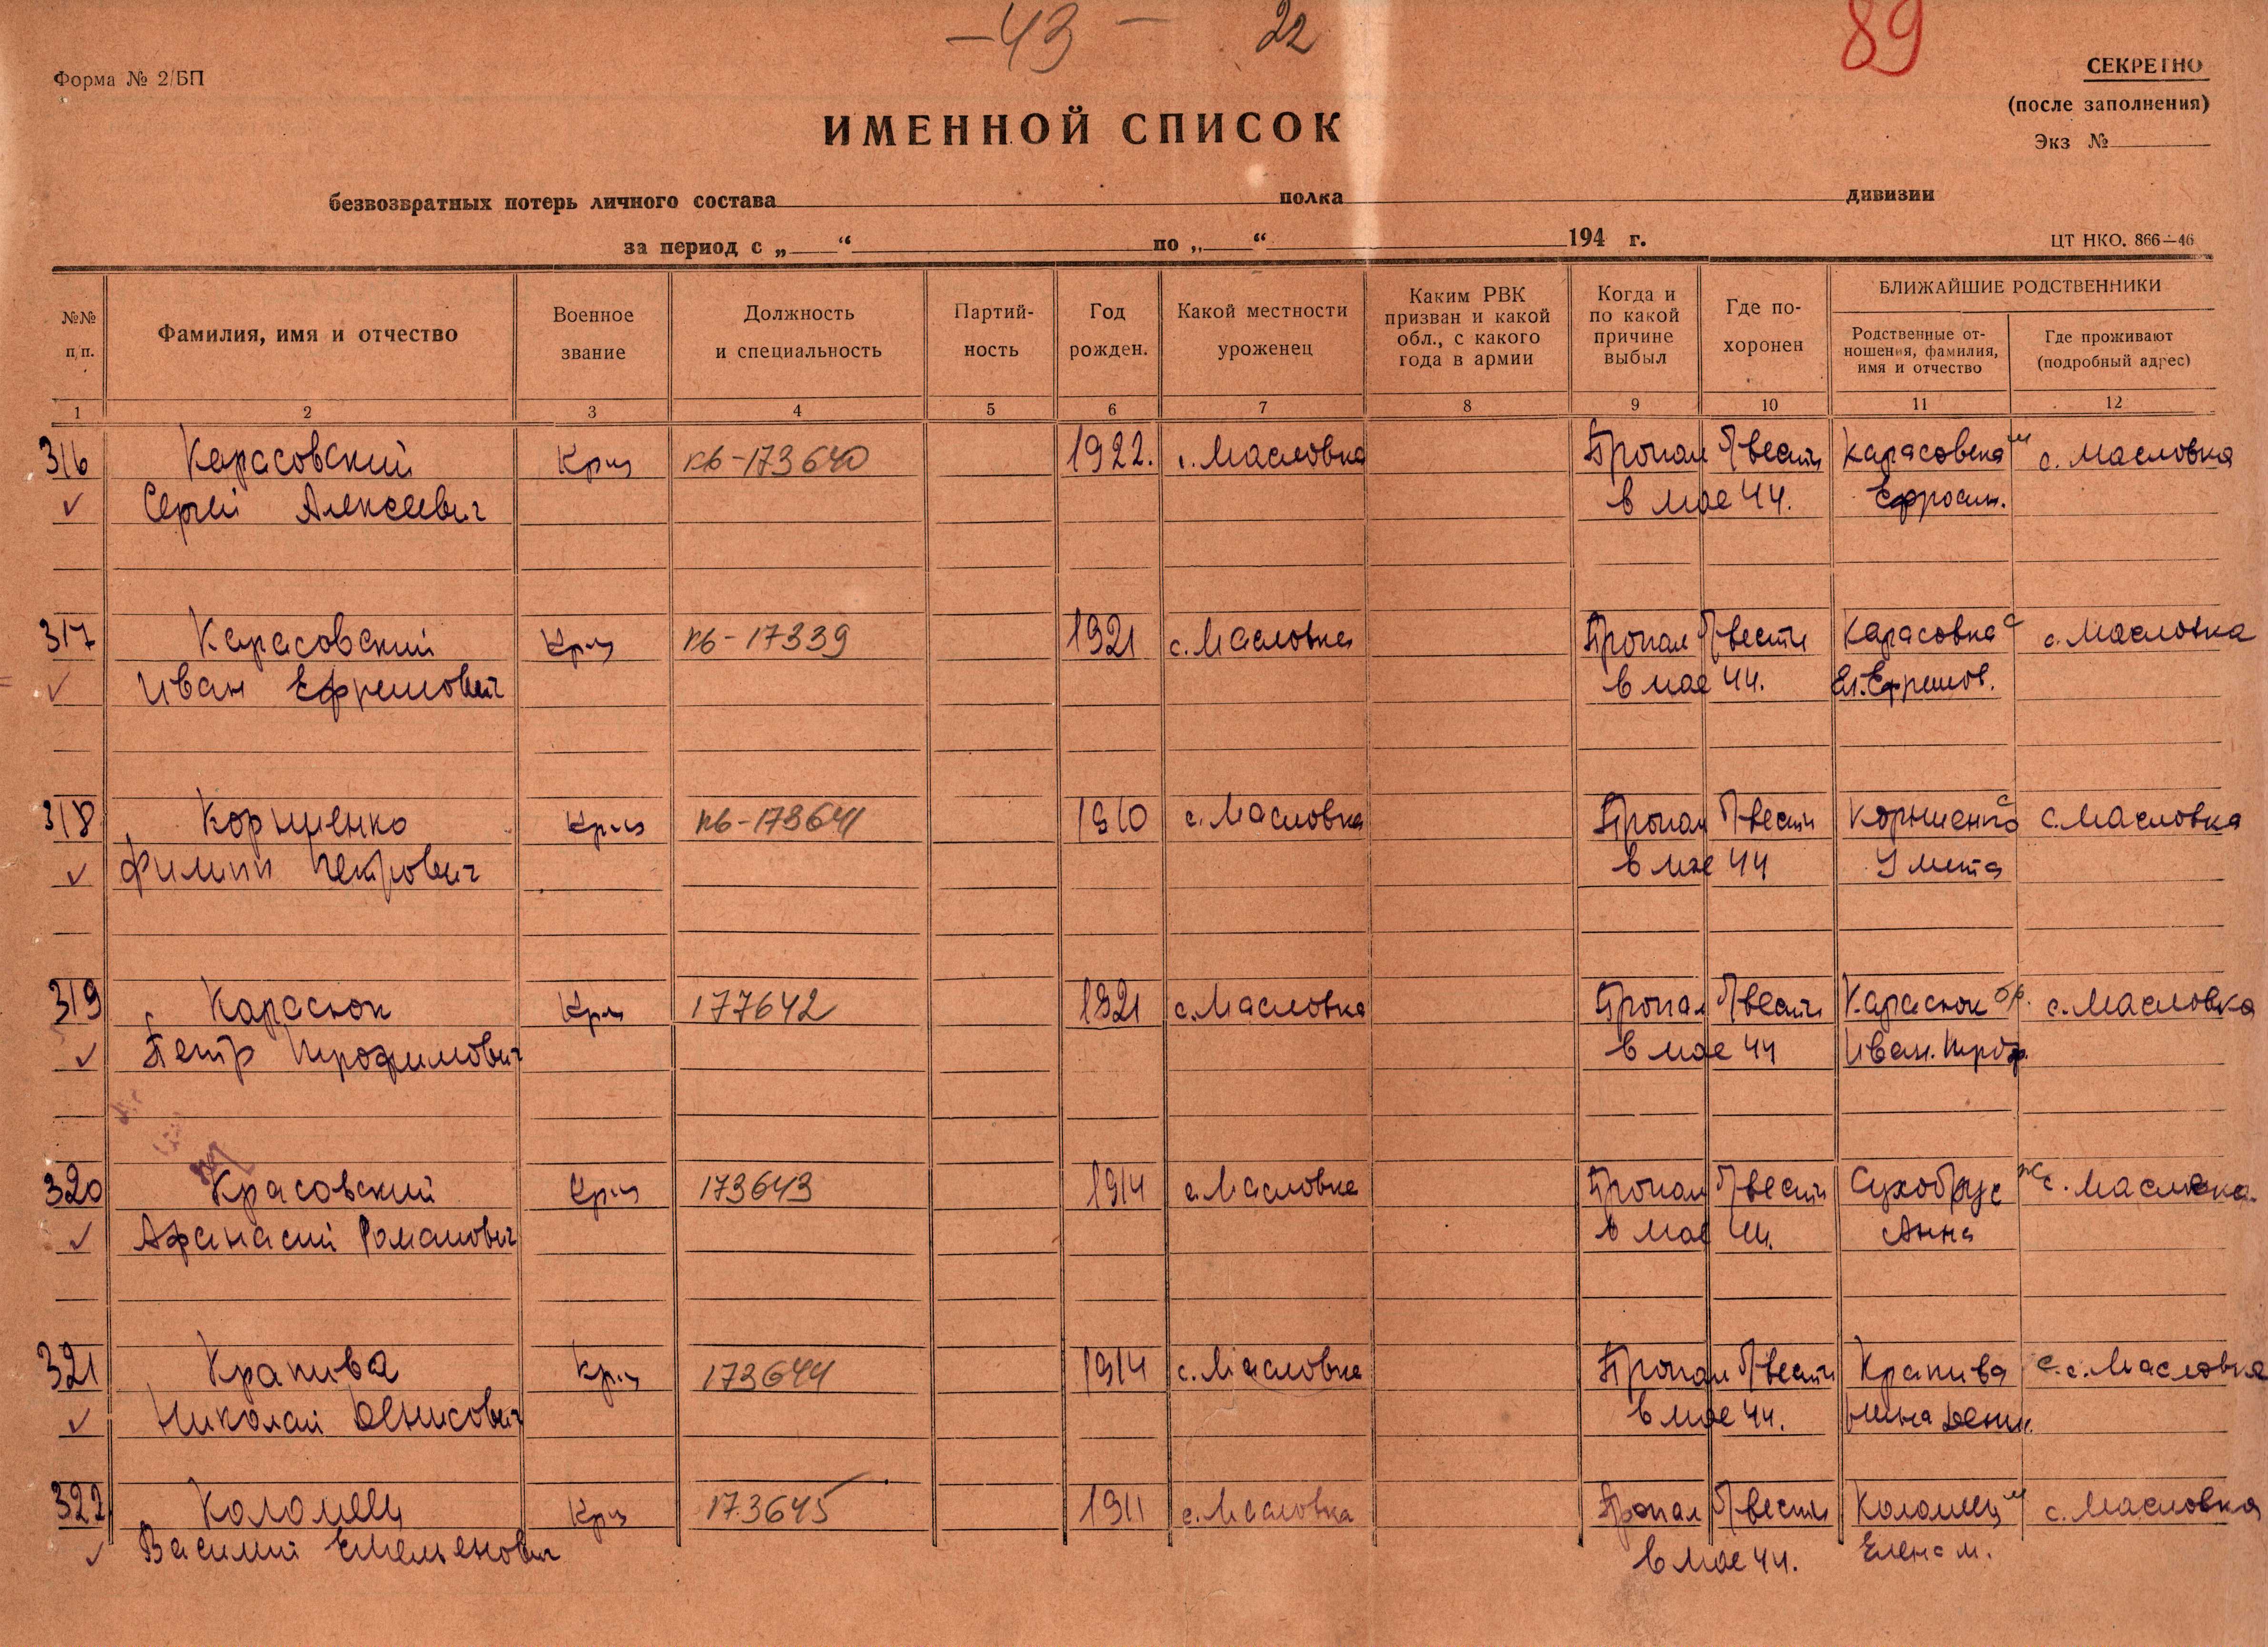 -43- 22 89
Форма № 2/БП
СЕКРЕТНО
(после заполнения)
Экз №
ИМЕННОЙ СПИСОК
безвозвратных потерь личного состава полка дивизии
за период с „ “ по „ “ 194 г.
ЦТ НКО. 866—46
№№ п/п.
Фамилия, имя и отчество
Военное звание
Должность и специальность
Партий- ность
Год рожден.
Какой местности уроженец
Каким РВК призван и какой обл., с какого года в армии
Когда и по какой причине выбыл
Где по- хоронен
БЛИЖАЙШИЕ РОДСТВЕННИКИ
Родственные от- ношения, фамилия, имя и отчество
Где проживают (подробный адрес)
1 2 3 4 5 6 7 8 9 10 11 12
316 Карасовский Кр-ц кв-173640 1922. с. Масловка Пропал б/вести Карасовска м с. Масловка
✓ Сергей Алексеевич в мае 44. Ефросин.
317 Карасовский Кр-ц кв-17339 1921 с. Масловка Пропал б/вести Карасовка с с. Масловка
✓ Иван Ефремович в мае 44. Ел. Ефремов.
318 Корниенко Кр-ц кв-173641 1910 с. Масловка Пропал б/вести Корниенко с с. Масловка
✓ Филипп Петрович в мае 44
319 Карасюк Кр-ц 177642 1921 с. Масловка Пропал б/вести Карасюк бр. с. Масловка
✓ Петр Трофимович в мае 44 Иван. Троф.
320 Красовский Кр-ц 173643 1914 с. Масловка Пропал б/вести Сухобрус ж с. Масловка.
✓ Афанасий Романович в мае 44. Анна
321 Крапива Кр-ц 173644 1914 с. Масловка Пропал б/вести Крапива с. с. Масловка
✓ Николай Денисович в мае 44. Нина Денис.
322 Коломец Кр-ц 173645 1911 с. Масловка Пропал б/вести Коломец м с. Масловка
✓ Василий Емельенович в мае 44. Елена М.